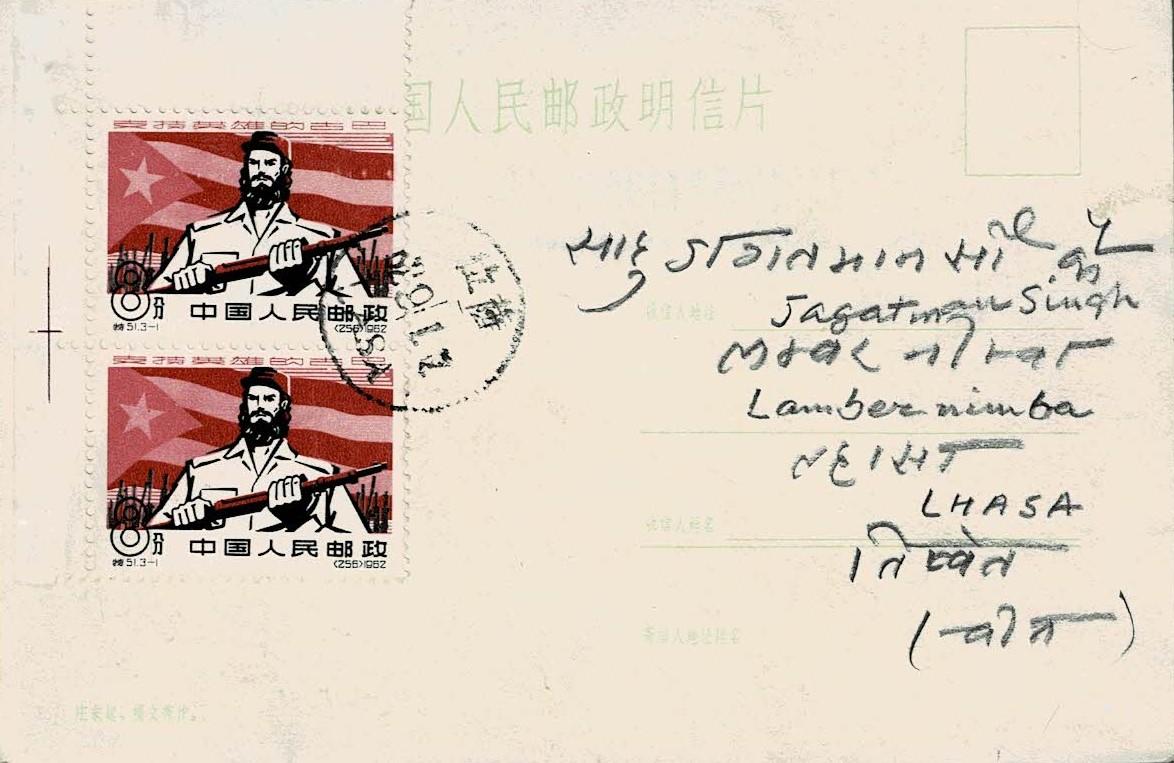 国人民邮政明信片
支持英雄的古巴
8分 中国人民邮政
特51.3-1 (256)1962
支持英雄的古巴
8分 中国人民邮政
特51.3-1 (256)1962
上海
साहु जगतमान
收信人地址
Jagatman Singh
Lamber nimba
ल्हासा
收信人姓名
LHASA
तिब्बेत
寄信人地址姓名
(चीन)